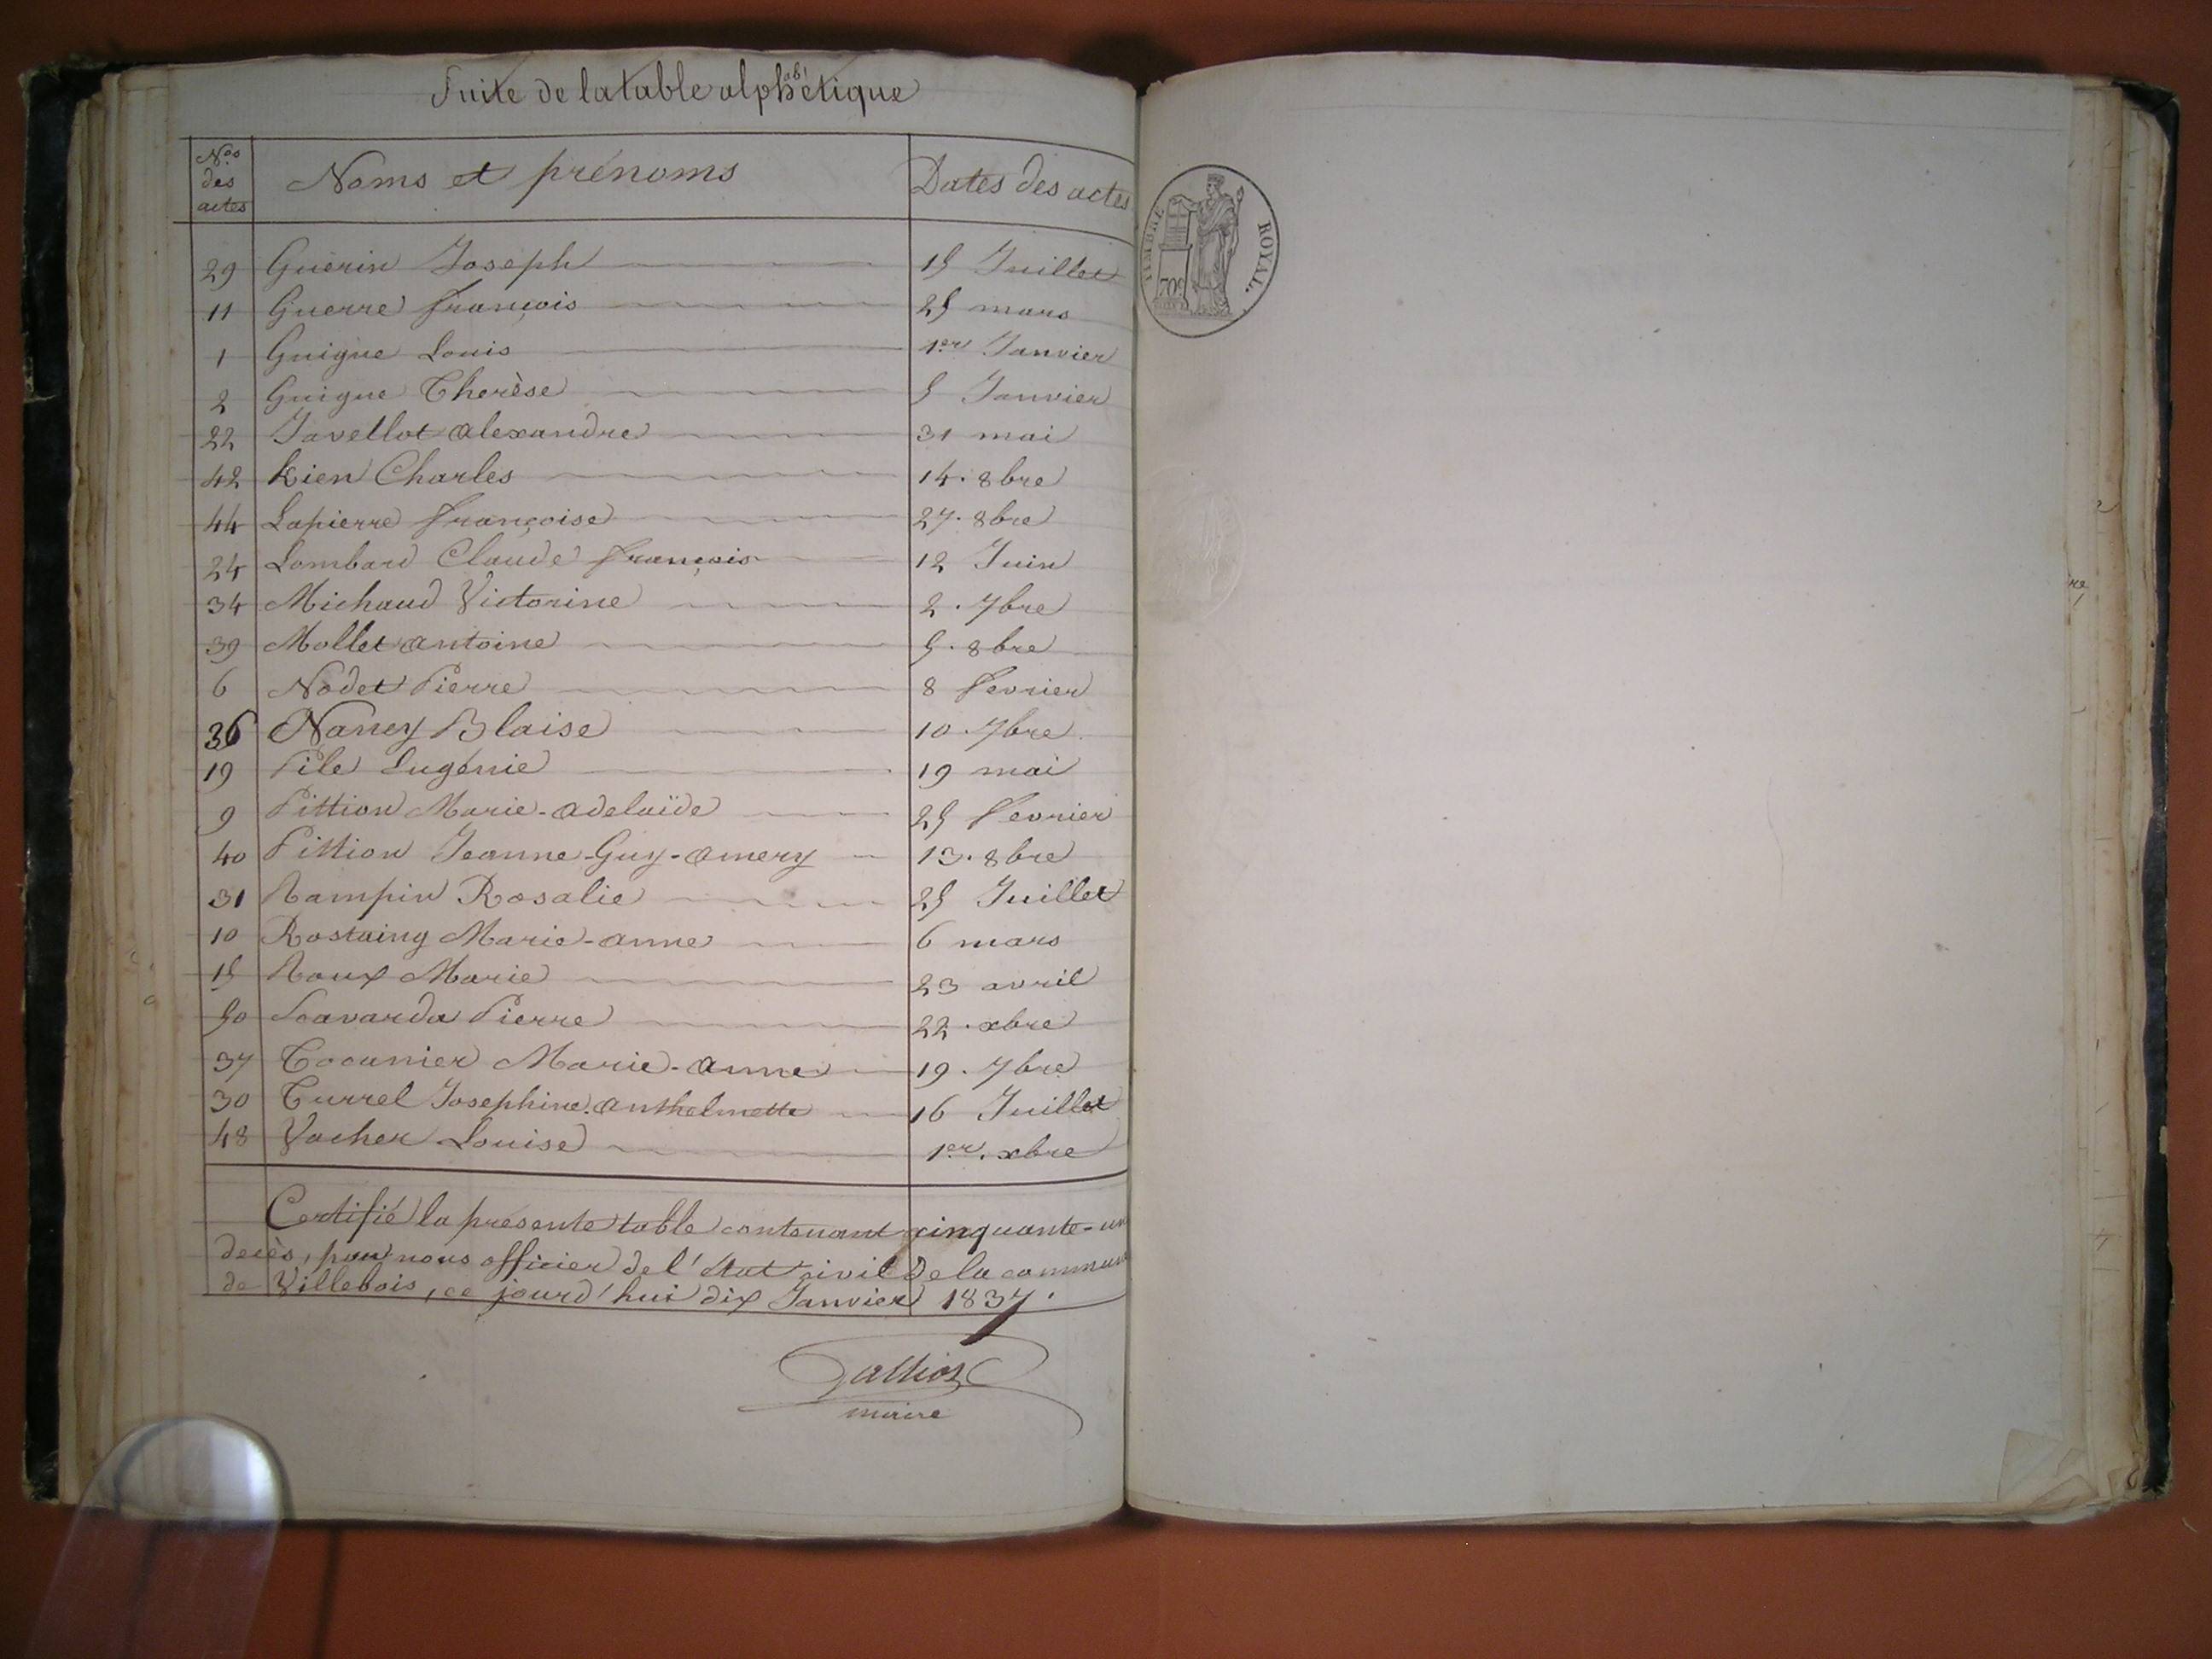 Suite de la table alphabétique
Nos des actes Noms et prénoms Dates des actes
29 Guérin Joseph 15 Juillet
11 Guerre françois 25 mars
1 Guigue Louis 1er Janvier
2 Guigue Therèse 5 Janvier
22 Javellot alexandre 31 mai
42 Kien Charles 14. 8bre
44 Lapierre françoise 27. 8bre
24 Lombard Claude françois 12 Juin
34 Michaud Victorine 2. 7bre
39 Mollet antoine 5. 8bre
6 Nodet Pierre 8 fevrier
36 Naney Blaise 10. 7bre
19 Pile Eugénie 19 mai
9 Pittion Marie-adelaïde 25 fevrier
40 Pittion Jeanne-Guy-amery 13. 8bre
31 Rampin Rosalie 25 Juillet
10 Rostaing Marie-anne 6 mars
15 Roux Marie 23 avril
50 Savarda Pierre 22. xbre
37 Tocanier Marie-anne 19. 7bre
30 Turrel Josephine. anthelmette 16 Juillet
48 Vacher Louise 1er. xbre
Certifié la présente table contenant cinquante-un
decès, par nous officier de l'état civil de la commune
de Villebois, ce jourd'hui dix Janvier 1837.
maire
TIMBRE ROYAL.
70c